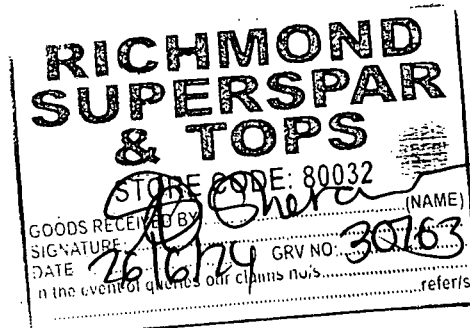 RICHMOND
SUPERSPAR
& TOPS
STORE CODE: 80032
GOODS RECEIVED BY (NAME)
SIGNATURE:
DATE 26/6/24 GRV NO: 30763
In the event of queries our claims no/s. refer/s